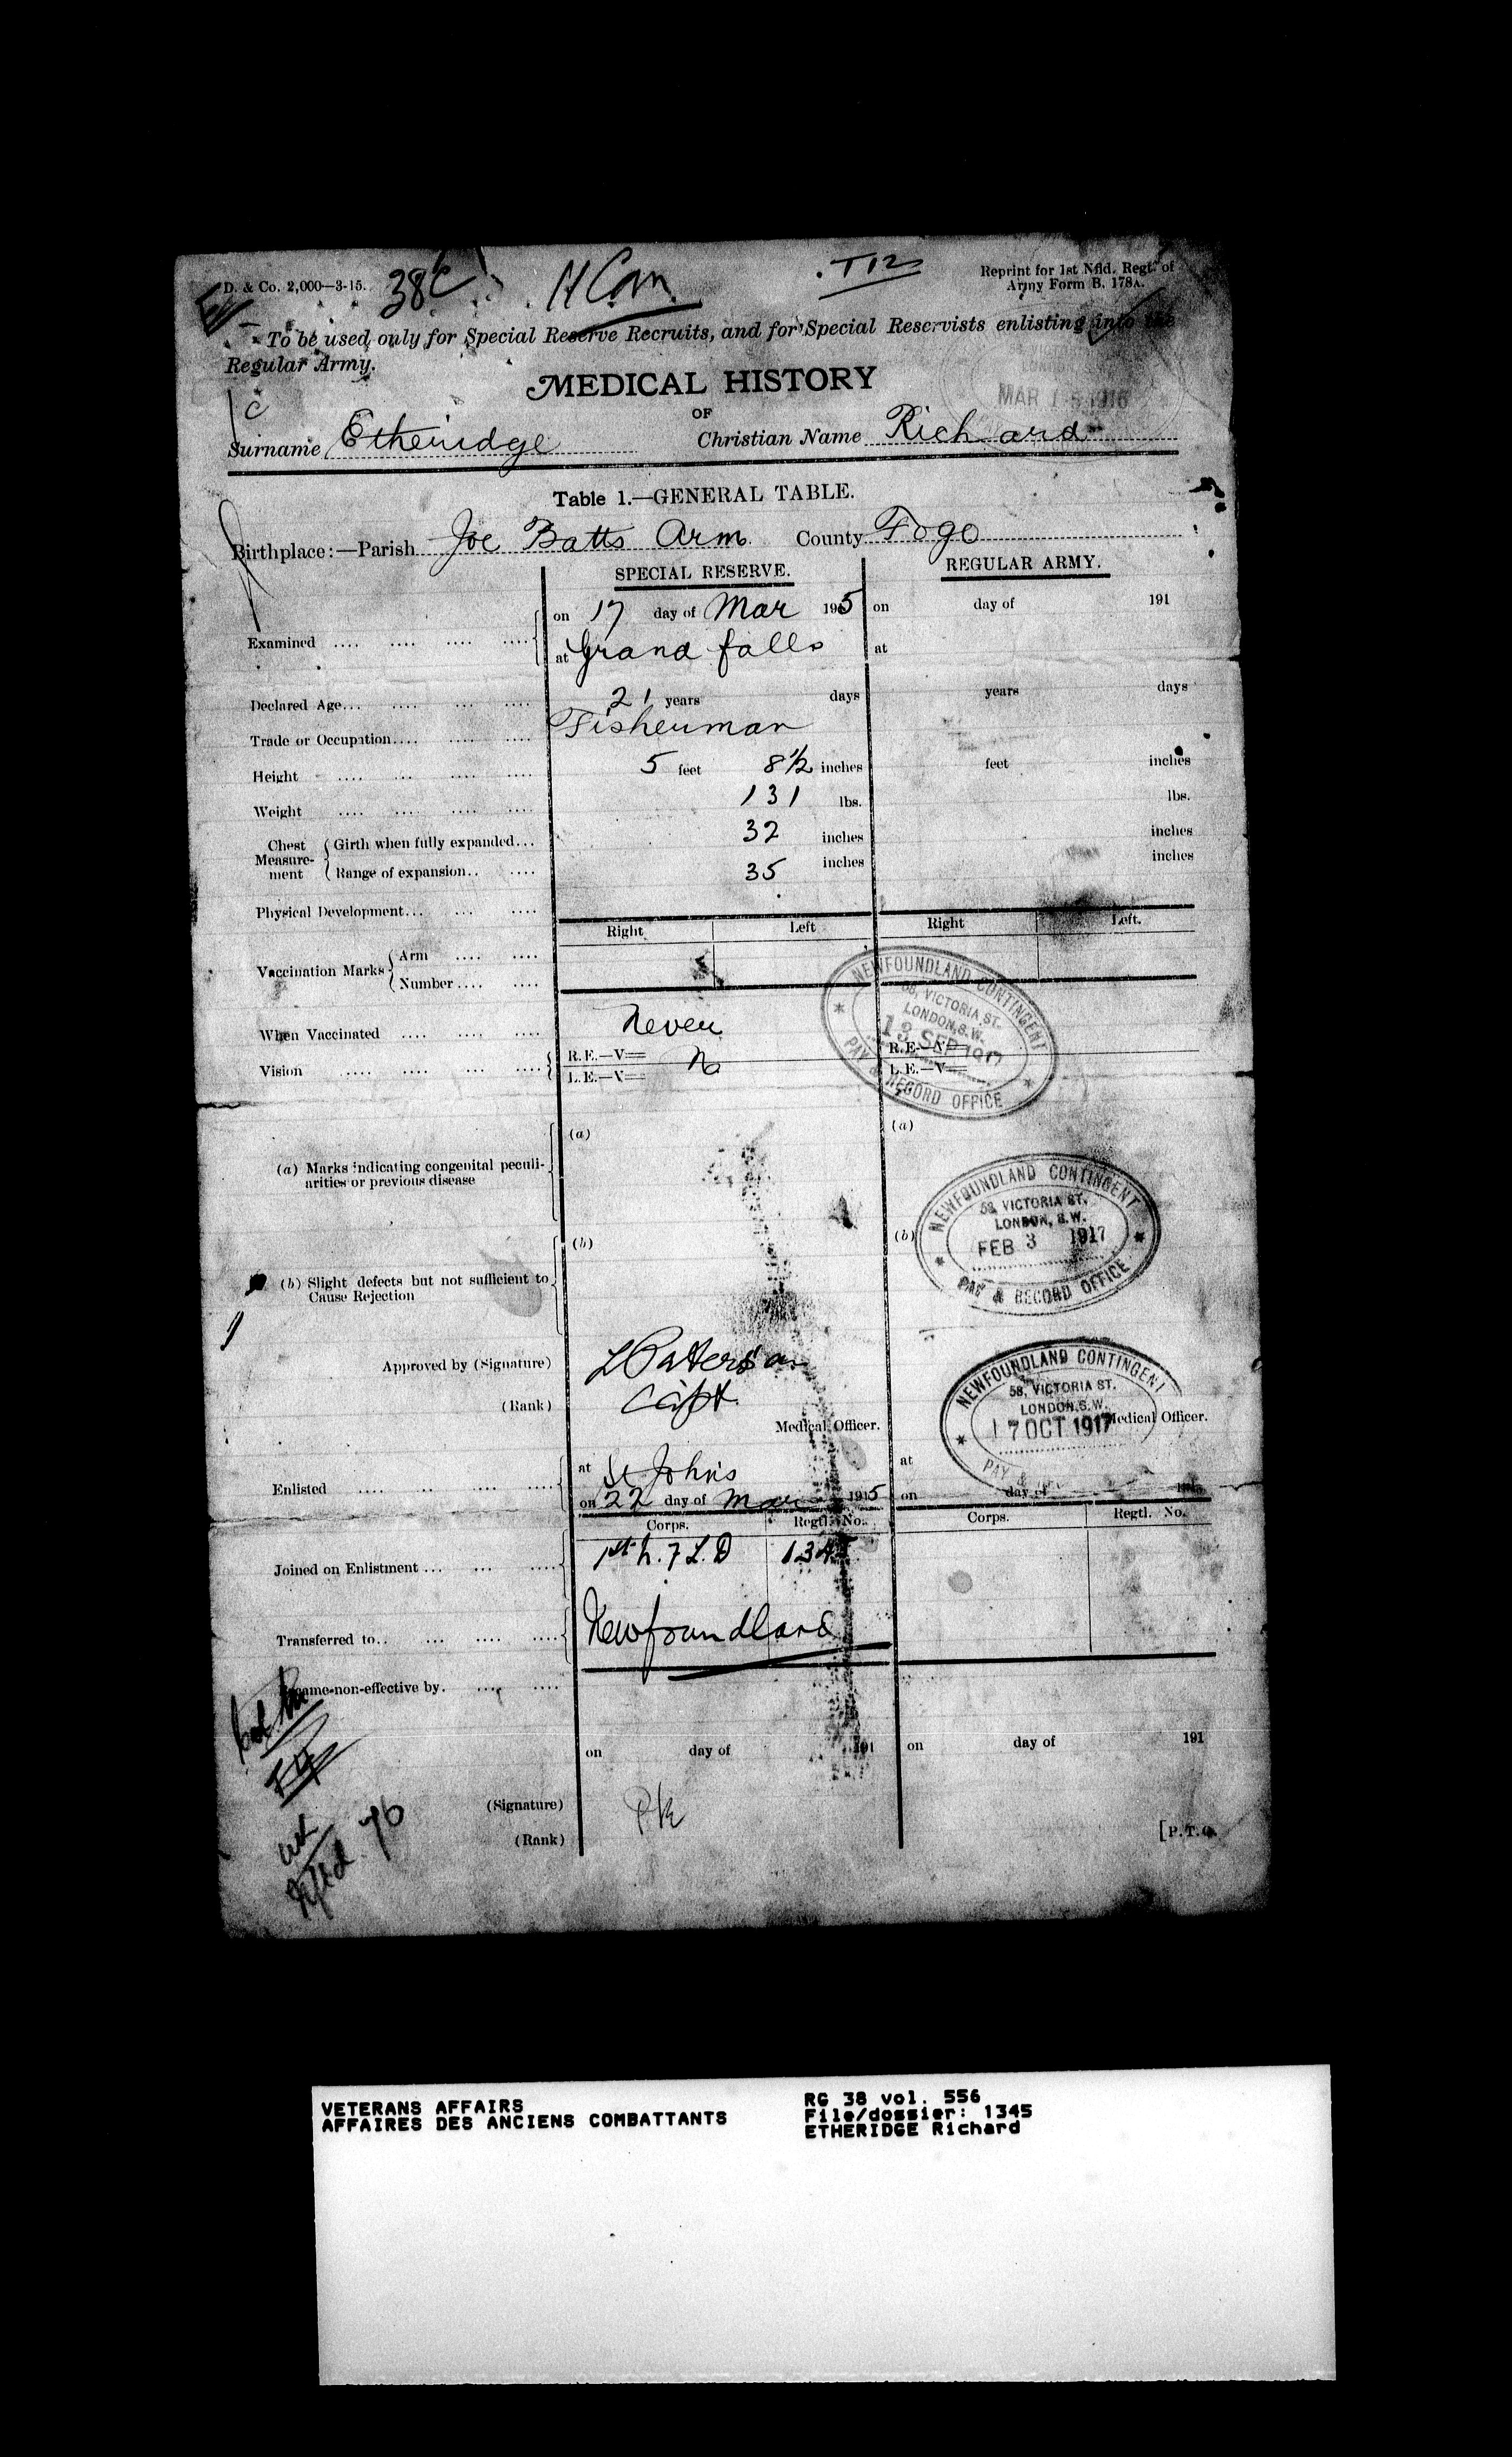 D. & Co. 2,000—3-15.
T12
Reprint for 1st Nfld. Regt. of
Army Form B. 178A.
To be used only for Special Reserve Recruits, and for Special Reservists enlisting into the
Regular Army.
MEDICAL HISTORY
MAR 1 5 1916
OF
Surname Etheridge Christian Name Richard
Table 1.—GENERAL TABLE.
Birthplace:—Parish Joe Batts Arm County Fogo
SPECIAL RESERVE. REGULAR ARMY.
Examined .... .... .... .... on 17 day of Mar 1915 on day of 191
at Grand falls at
Declared Age... .... .... .... 21 years days years days
Trade or Occupation.... .... .... Fisherman
Height .... .... .... .... 5 feet 8½ inches feet inches
Weight .... .... .... .... 131 lbs. lbs.
Chest Measurement Girth when fully expanded... 32 inches inches
Range of expansion.. .... 35 inches inches
Physical Development... .... ....
Right Left Right Left.
Vaccination Marks Arm .... ....
Number .... ....
When Vaccinated .... .... .... Never
Vision .... .... .... .... R.E.—V= N R.E.—V=
L.E.—V= L.E.—V=
NEWFOUNDLAND CONTINGENT
58, VICTORIA ST.
LONDON, S.W.
13 SEP 1917
PAY & RECORD OFFICE
(a) (a)
(a) Marks indicating congenital peculi-
arities or previous disease
NEWFOUNDLAND CONTINGENT
58, VICTORIA ST.
LONDON, S.W.
FEB 3 1917
PAY & RECORD OFFICE
(b) (b)
(b) Slight defects but not sufficient to
Cause Rejection
Approved by (Signature) L Paterson
(Rank) Capt.
Medical Officer. Medical Officer.
NEWFOUNDLAND CONTINGENT
58, VICTORIA ST.
LONDON, S.W.
17 OCT 1917
PAY &
Enlisted .... .... .... .... at St Johns at
on 22 day of Mar 1915 on day of 191
Corps. Regtl. No. Corps. Regtl. No.
Joined on Enlistment ... .... .... 1st N. F L. D 1345
Transferred to.. .... .... .... Newfoundland
Became non-effective by. .... ....
on day of 191 on day of 191
(Signature)
(Rank)
[P.T.O.
VETERANS AFFAIRS
AFFAIRES DES ANCIENS COMBATTANTS
RG 38 vol. 556
File/dossier: 1345
ETHERIDGE Richard